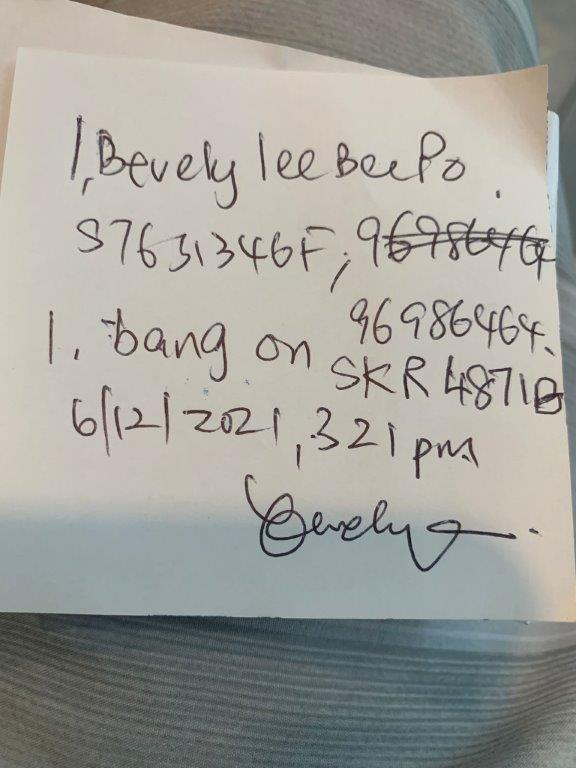 I, Bevely lee Bee Po.
S7631346F, 96986464
96986464.
I, bang on
SKR 4871B
6/12/2021, 321 pm
Bevely